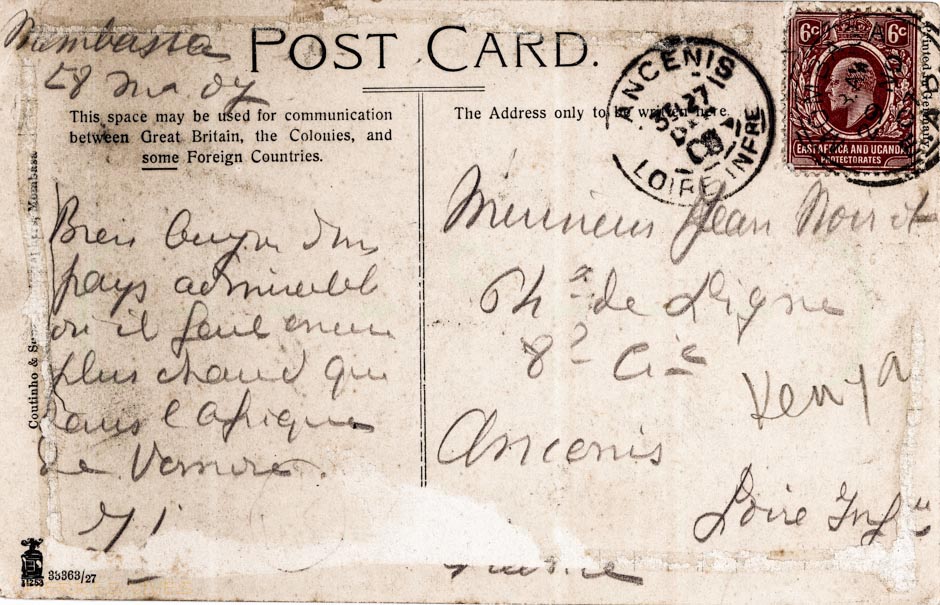 Mombassa
POST CARD.
This space may be used for communication
between Great Britain, the Colonies, and
some Foreign Countries.
The Address only to be written here.
ANCENIS
27
LOIRE INFRE
6c 6c
EAST AFRICA AND UGANDA
PROTECTORATES
Printed in Germany
Coutinho & Mombasa
pays admirable
où il fait encore
plus chaud que
dans l'Afrique
de
Monsieur Jean Noiret
de Ligne
8e Cie
Kenya
Ancenis
Loire Infre
33363/27